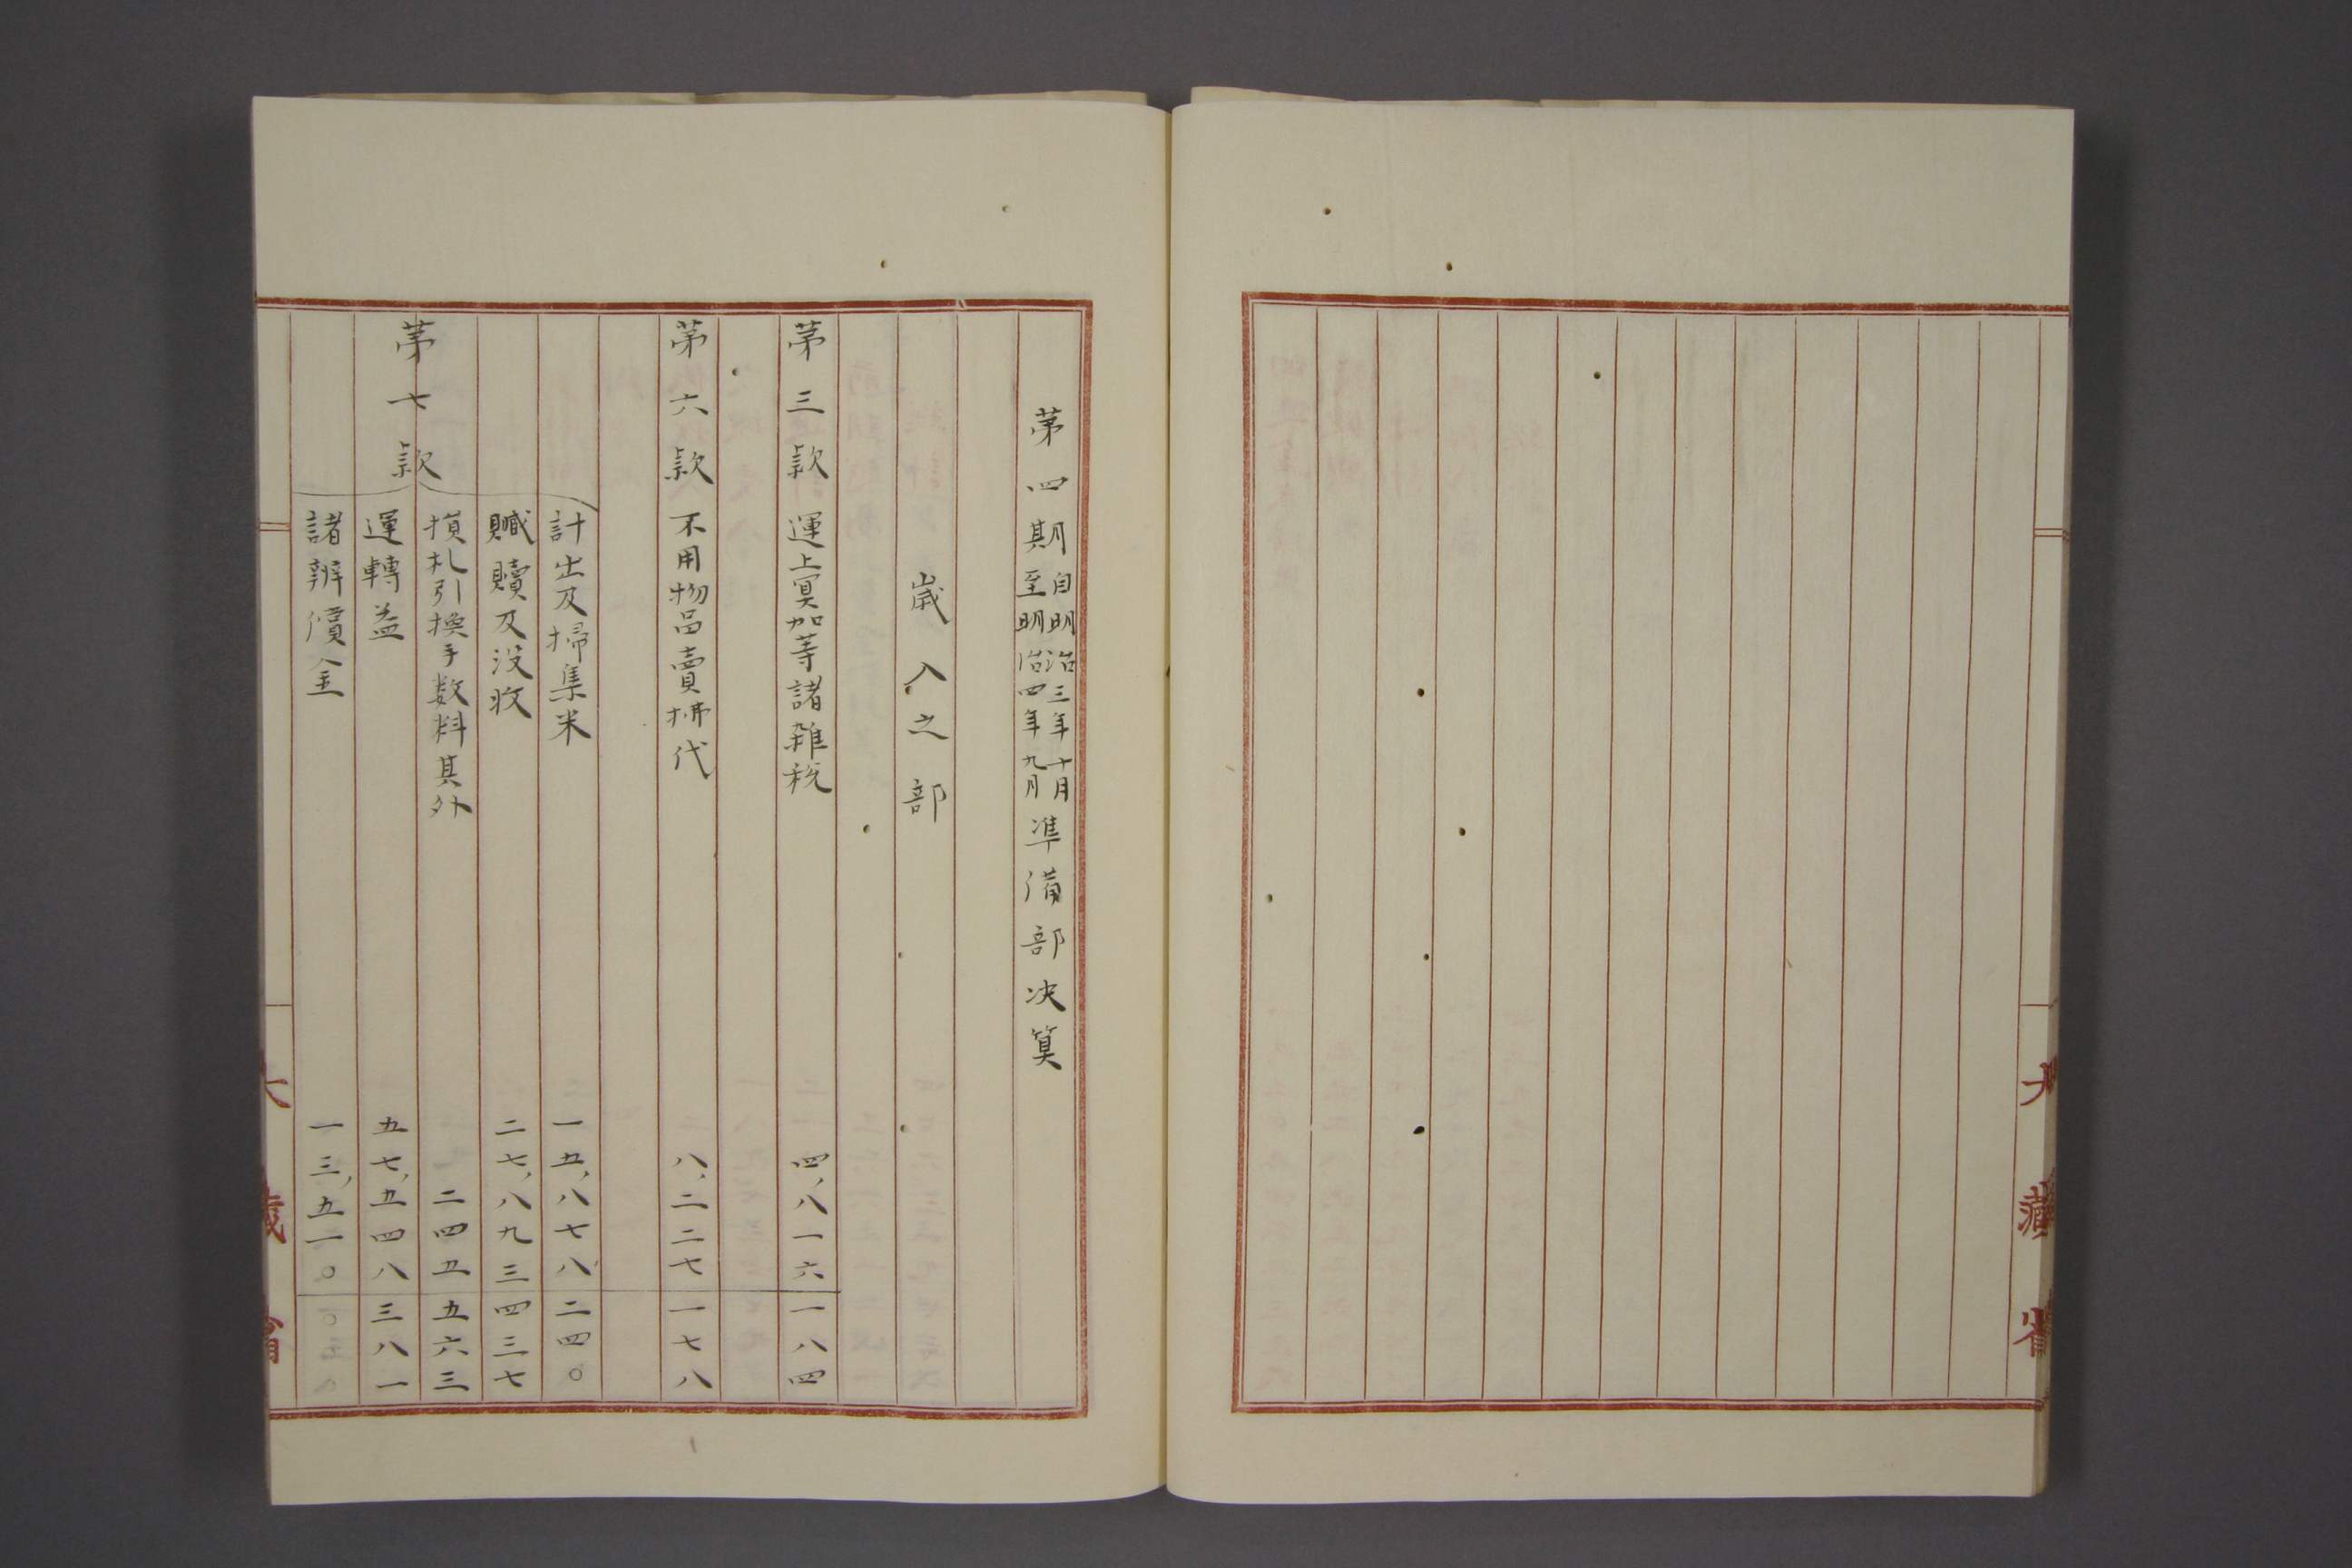 大藏省
第四期自明治三年十月至明治四年九月準備部決算
歳入之部
第三款 運上冥加等諸雜税 四,八一六 一八四
第六款 不用物品賣拂代 八,二二七 一七八
第七款
計出及掃集米 一五,八七八 二四〇
贓贖及没收 二七,八九三 四三七
損札引換手数料其外 二四五 五六三
運轉益 五七,五四八 三八一
諸辨償金 一三,五一〇
大藏省